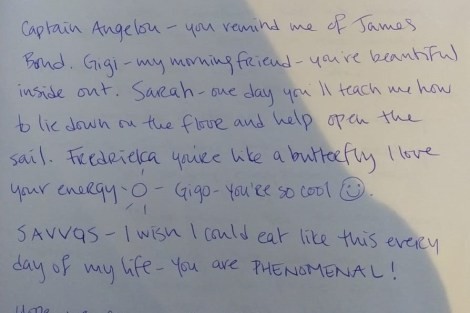 Captain Angelou - you remind me of James
Bond. Gigi - my morning friend - you're beautiful
inside out. Sarah - one day you'll teach me how
to lie down on the floor and help open the
sail. Fredrieka you're like a butterfly I love
your energy - Gigo - You're so cool ☺.
SAVVAS - I wish I could eat like this every
day of my life - You are PHENOMENAL!